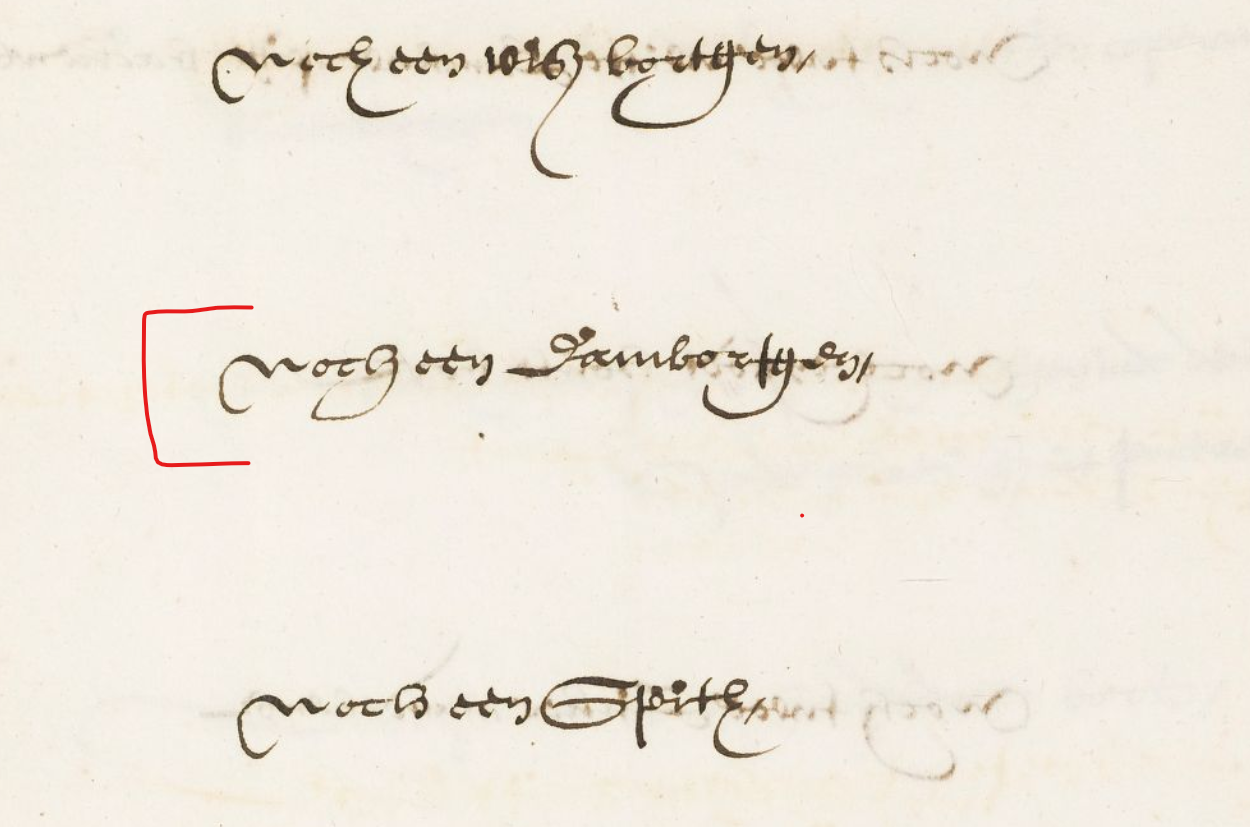 Noch een wisch bortgen
Noch een Dambortgen
Noch een Spith